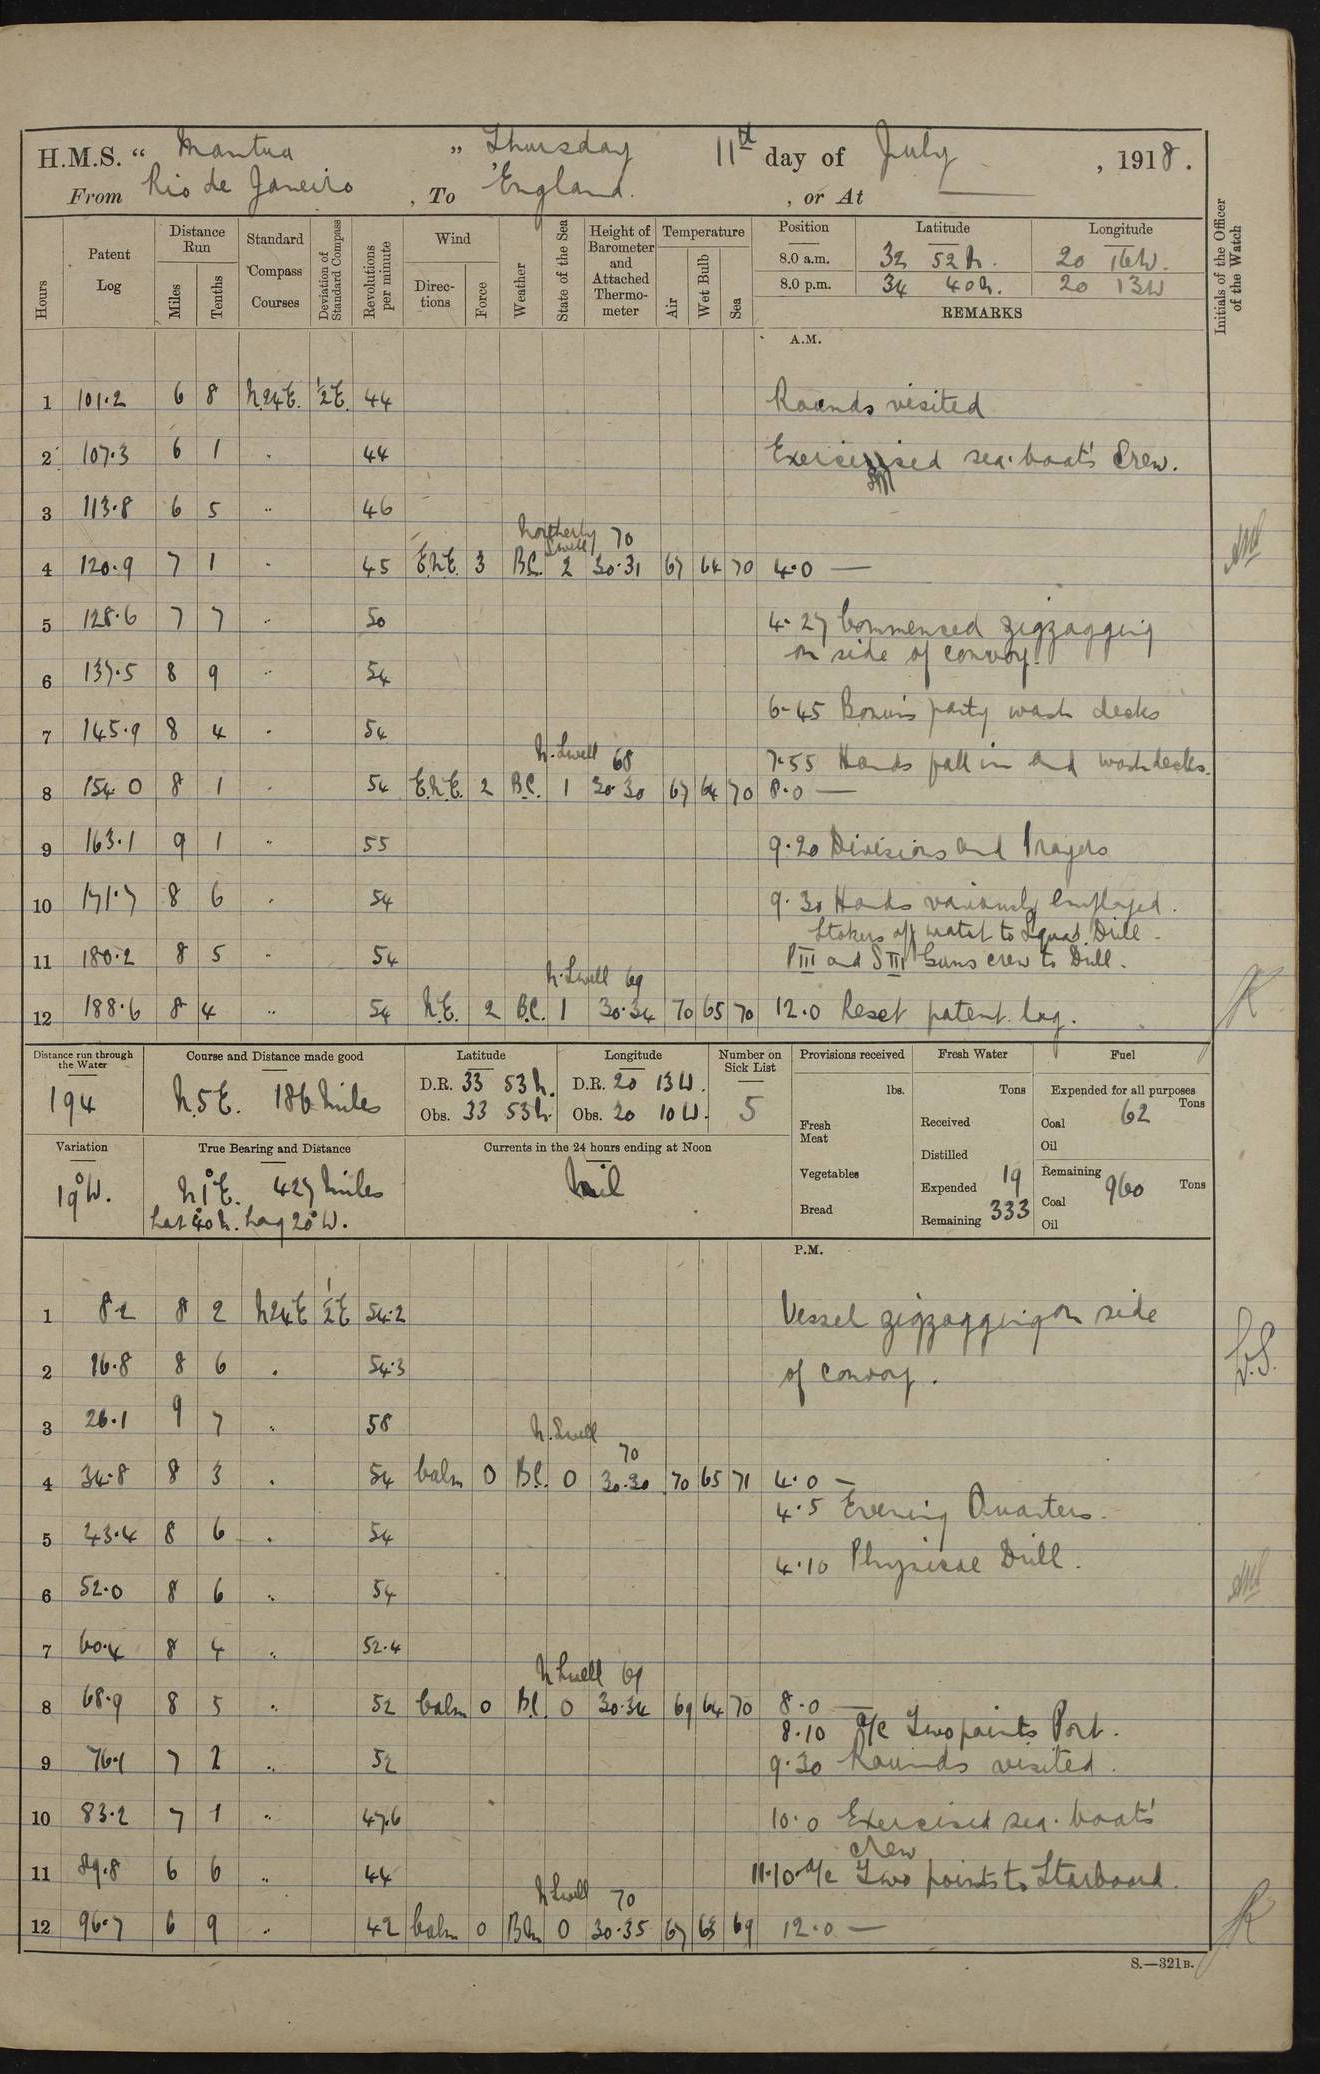 H.M.S. “ Mantua „ Thursday 11th day of July , 1918.
From Rio de Janeiro , To England. , or At
Hours Patent Log Distance Run Miles Tenths Standard Compass Courses Deviation of Standard Compass Revolutions per minute Wind Directions Force Weather State of the Sea Height of Barometer and Attached Thermometer Temperature Air Wet Bulb Sea Position Latitude Longitude Initials of the Officer of the Watch
8.0 a.m. 32 52 N. 20 16 W.
8.0 p.m. 34 40 N. 20 13 W
REMARKS
A.M.
1 101.2 6 8 N.24E. ½E. 44 Rounds visited
2 107.3 6 1 . 44 Exercised sea-boat's Crew.
3 113.8 6 5 " 46
Northerly Swell 70
4 120.9 7 1 . 45 E.N.E. 3 B.C. 2 30.31 67 64 70 4.0 —
5 128.6 7 7 " 50 4.27 Commenced zigzagging
on side of convoy.
6 137.5 8 9 " 54
6-45 Bosun's party wash decks
7 145.9 8 4 . 54
N. Swell 68 7.55 Hands fall in and wash decks.
8 154 0 8 1 . 54 E.N.E. 2 B.C. 1 30.30 67 64 70 8.0 —
9 163.1 9 1 " 55 9.20 Divisions and Prayers
10 171.7 8 6 . 54 9.30 Hands variously employed.
Stokers off watch to Squad Drill.
11 180.2 8 5 " 54 P III and S III Guns crew to Drill.
N. Swell 69
12 188.6 8 4 " 54 N.E. 2 B.C. 1 30.34 70 65 70 12.0 Reset patent log.
Distance run through the Water Course and Distance made good Latitude Longitude Number on Sick List Provisions received Fresh Water Fuel
194 N.5E. 186 Miles D.R. 33 53 N. D.R. 20 13 W. 5 lbs. Tons Expended for all purposes Tons
Obs. 33 53 N. Obs. 20 10 W. Fresh Meat Received Coal 62
Distilled Oil
Variation True Bearing and Distance Currents in the 24 hours ending at Noon
19° W. N1°E. 427 Miles Nil Vegetables Expended 19 Remaining Coal 960 Tons
Lat 40 N. Long 20° W. Bread Remaining 333 Oil
P.M.
1 8.2 8 2 N24E ½E 54.2 Vessel zigzagging on side
2 16.8 8 6 . 54.3 of convoy.
3 26.1 9 7 " 58
N. Swell 70
4 34.8 8 3 . 54 Calm 0 B.C. 0 30.30 70 65 71 4.0 —
4.5 Evening Quarters.
5 43.4 8 6 . 54
4.10 Physical Drill.
6 52.0 8 6 " 54
7 60.4 8 4 " 52.4
N Swell 69
8 68.9 8 5 " 52 Calm 0 B.C. 0 30.34 69 64 70 8.0 —
8.10 A/C Two points Port.
9 76.1 7 2 " 52 9.30 Rounds visited.
10 83.2 7 1 " 47.6 10.0 Exercised sea-boat's
crew
11 89.8 6 6 " 44 11.10 A/C Two points to Starboard.
N Swell 70
12 96.7 6 9 " 42 Calm 0 Bcm 0 30.35 67 63 69 12.0 —
S.—321B.